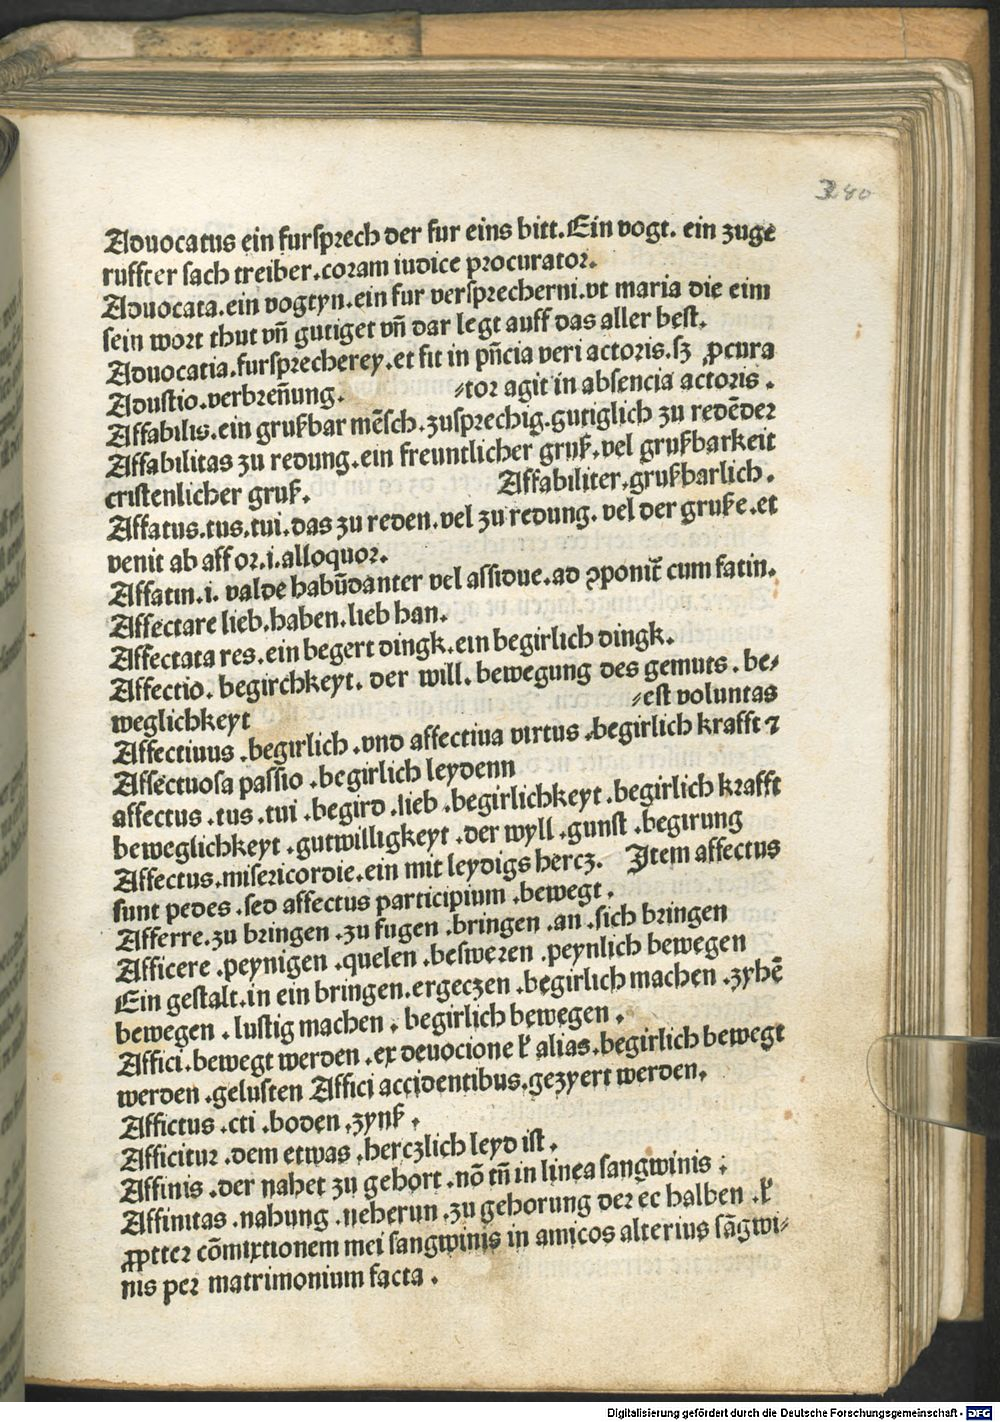 3280
Aduocatus ein fursprech der fur eins bitt. Ein vogt. ein zuge
ruffter sach treiber. coram iudice procurator.
Aduocata. ein vogtyn. ein fur versprecherni. vt maria die eim
sein wort thut vñ gutiget vñ dar legt auff das aller best.
Aduocatia. fursprecherey. et fit in pñcia veri actoris. sꝫ ꝓcura
Adustio. verbreñung. ⸗tor agit in absencia actoris.
Affabilis. ein grußbar mẽsch. zusprechig. gutiglich zu redẽder
Affabilitas zu redung. ein freuntlicher gruß. vel grußbarkeit
cristenlicher gruß. Affabiliter. grußbarlich.
Affatus. tus. tui. das zu reden. vel zu redung. vel der gruße. et
venit ab aff or. i. alloquor.
Affatin. i. valde habũdanter vel assidue. ad ꝓponit̃ cum fatin.
Affectare lieb. haben. lieb han.
Affectata res. ein begert dingk. ein begirlich dingk.
Affectio. begirchkeyt. der will. bewegung des gemuts. be⸗
weglichkeyt ⸗est voluntas
Affectiuus . begirlich . vnd affectiua virtus . begirlich krafft ⁊
Affectuosa passio . begirlich leydenn
affectus . tus . tui . begird . lieb . begirlichkeyt . begirlich krafft
beweglichkeyt . gutwilligkeyt . der wyll . gunst . begirung
Affectus. misericordie. ein mit leydigs hercz. Item affectus
sunt pedes . sed affectus participium . bewegt .
Afferre. zu bringen . zu fugen . bringen . an . sich bringen
Afficere . peynigen . quelen . besweren . peynlich bewegen
Ein gestalt. in ein bringen. ergeczen . begirlich machen . zyhẽ
bewegen . lustig machen . begirlich bewegen .
Affici. bewegt werden . ex deuocione ł alias. begirlich bewegt
werden . gelusten Affici accidentibus. gezyert werden.
Affictus . cti . boden . zynß .
Afficitur . dem etwas . herczlich leyd ist .
Affinis . der nahet zu gehort . nõ tñ in linea sangwinis .
Affinitas . nahung . neherun . zu gehorung der ee halben . ł
ꝓpter cõmixtionem mei sangwinis in amicos alterius sãgwi⸗
nis per matrimonium facta .
Digitalisierung gefördert durch die Deutsche Forschungsgemeinschaft - DFG